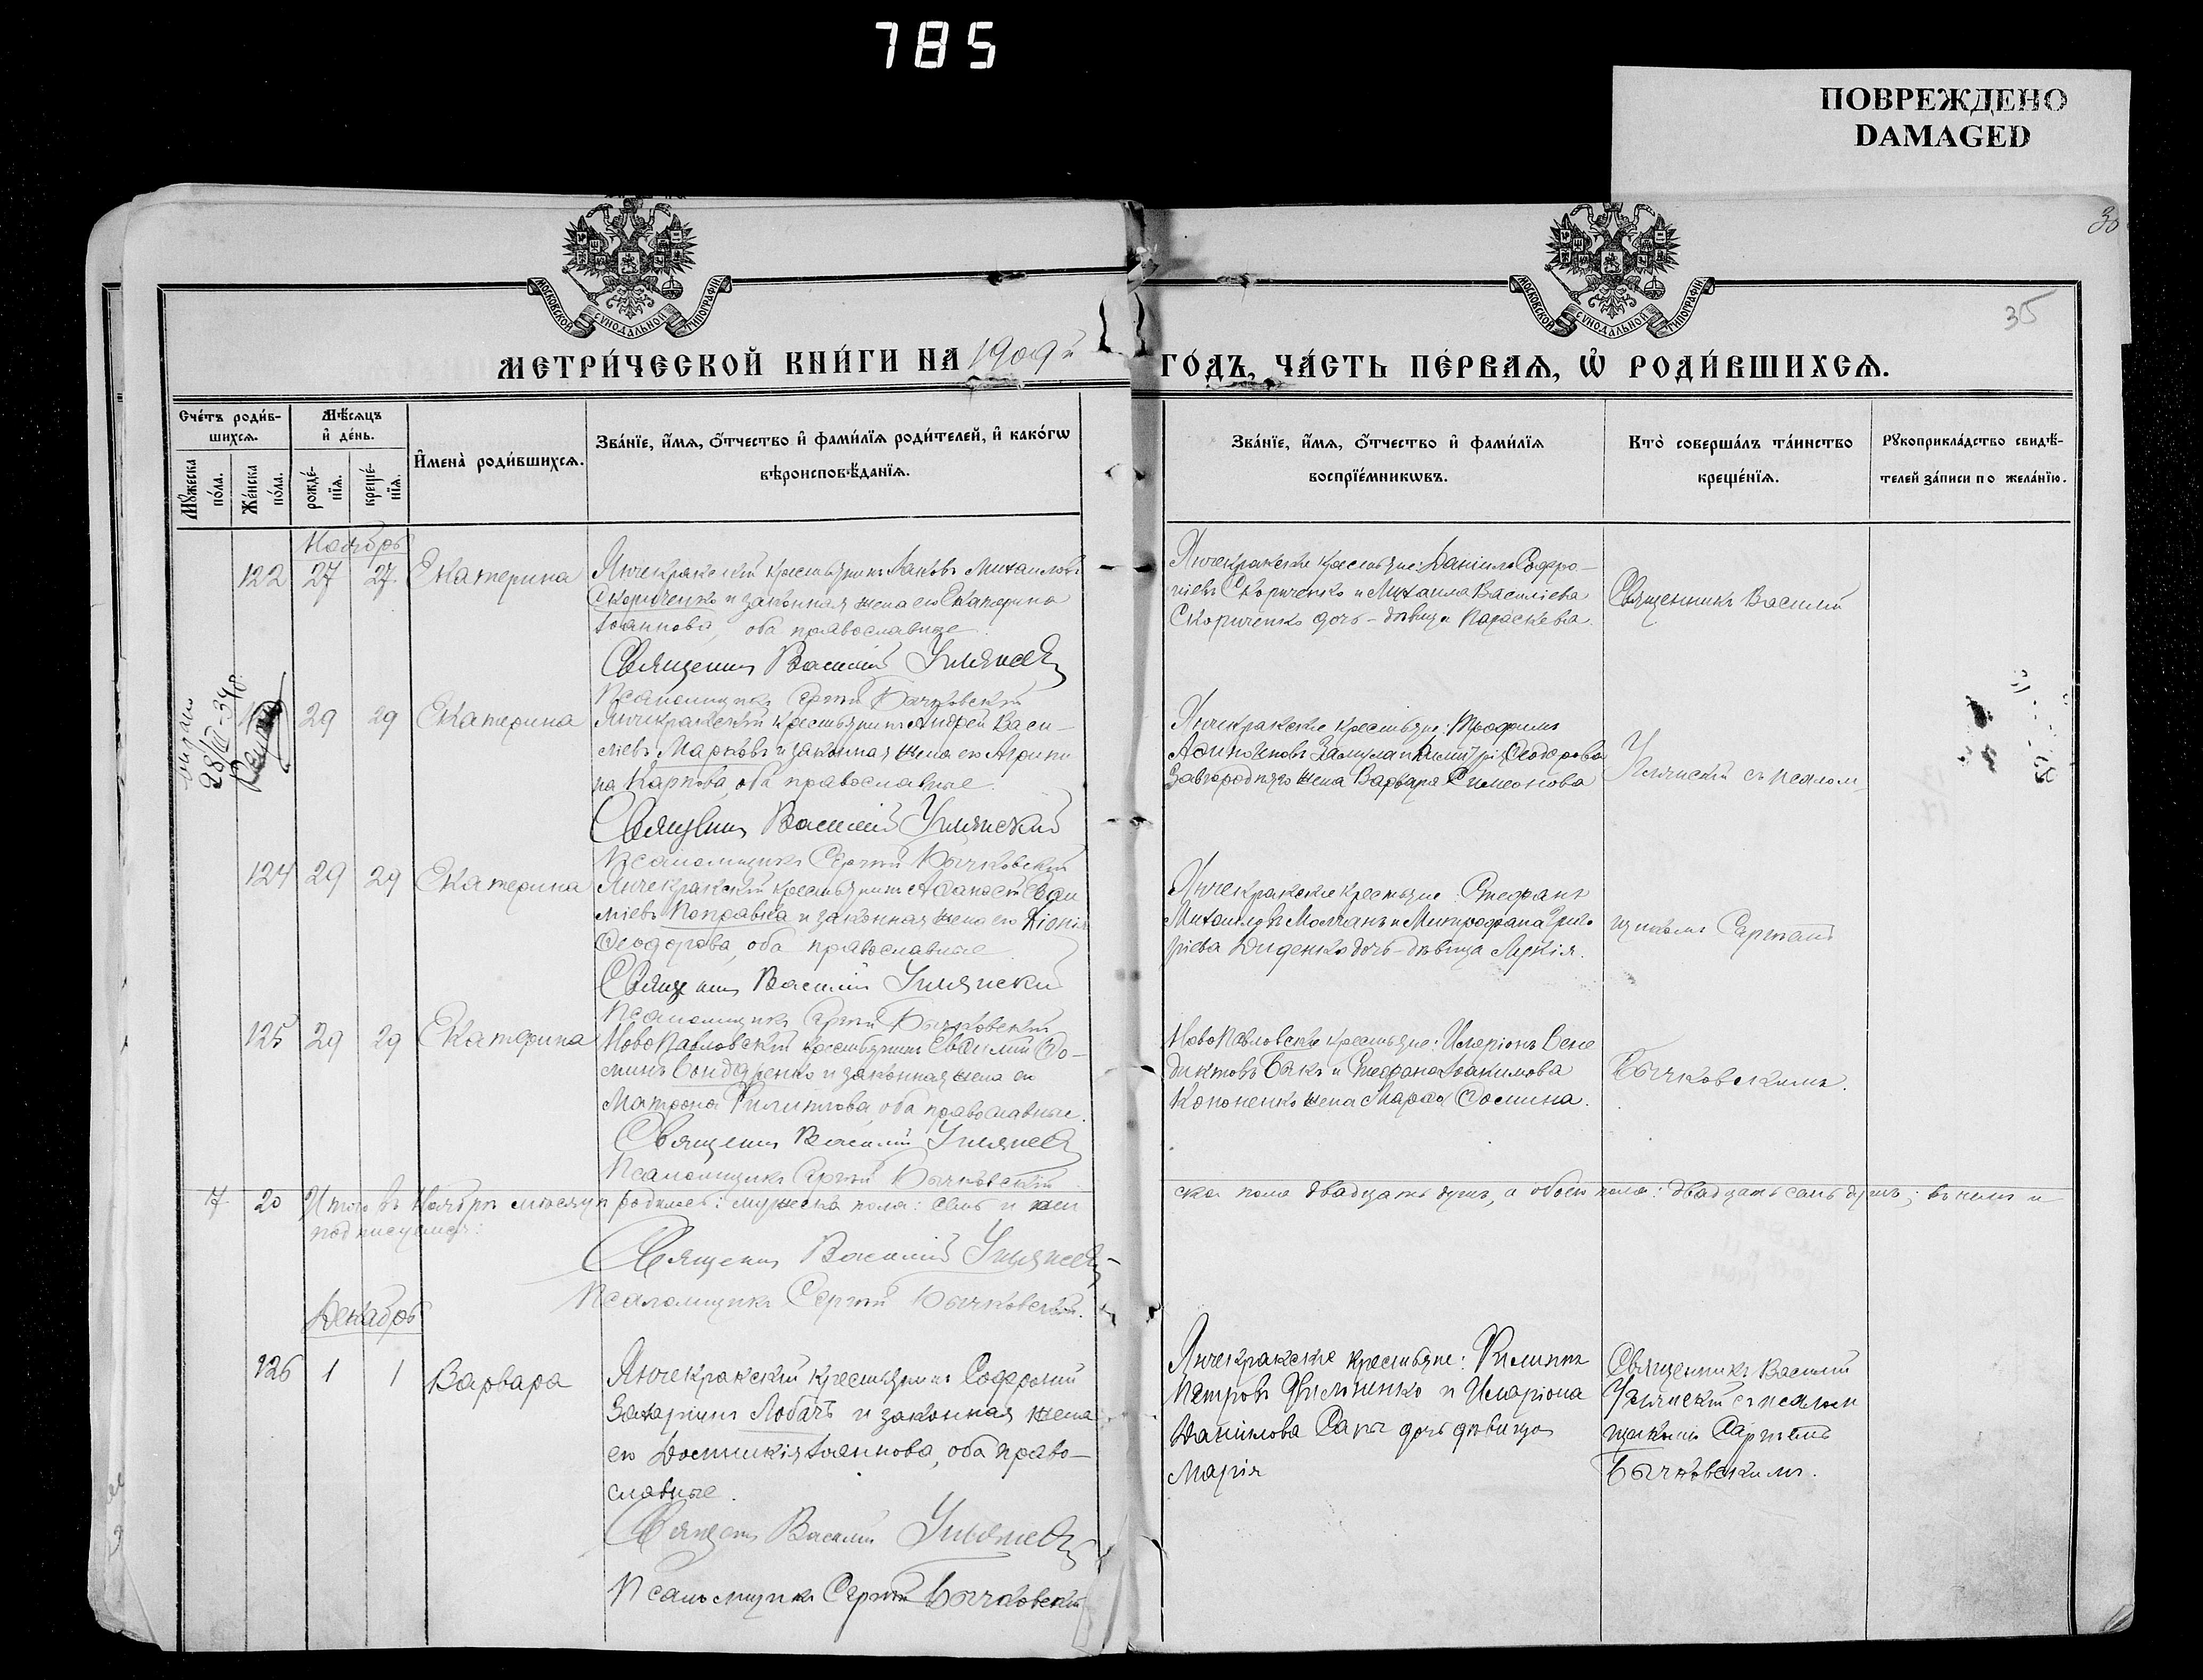 785
ПОВРЕЖДЕНО
DAMAGED
30
35
МОСКОВСКОЙ СѴНОДАЛЬНОЙ ТИПОГРАФІИ
МОСКОВСКОЙ СѴНОДАЛЬНОЙ ТИПОГРАФІИ
МЕТРИ́ЧЕСКОЙ КНИ́ГИ НА 1909й ГО́ДЪ, ЧА́СТЬ ПЕ́РВАѦ, Ѡ҆ РОДИ́ВШИХСѦ.
Сче́тъ роди́в-
шихсѧ.
Мꙋ́жеска по́ла.
Же́нска по́ла.
Мѣ́сѧцъ
и҆ де́нь.
рожде́-
нїѧ.
креще́-
нїѧ.
И҆мена̀ роди́вшихсѧ.
Зва́нїе, и҆́мѧ, ѻ҆́тчество и҆ фами́лїѧ роди́телей, и҆ како́гѡ
вѣроисповѣ́данїѧ.
Зва́нїе, и҆́мѧ, ѻ҆́тчество и҆ фами́лїѧ
воспрїе́мникѡвъ.
Кто̀ соверша́лъ та́инство
креще́нїѧ.
Рꙋкоприкла́дство свидѣ́-
телей за́писи по жела́нїю.
Ноябрь
122 27 27 Екатерина
Янчекракскій крестьянинъ Іаковъ Михаиловъ
Скориченко и законная жена его Екатерина
Іоаннова, оба православные.
Священникъ Василій
Псаломщикъ Сергій Бычковскій
Янчекракские крестьяне: Даніилъ Софро-
ніевъ Скориченко и Михаила Василіева
Скориченко дочь-дѣвица Параскева.
Священникъ Василій
28/VI-34 г.
29 29 Екатерина
Янчекракскій крестьянинъ Андрей Васи-
ліевъ Марковъ и законная жена его Агрипи
на Карпова, оба православные.
Священникъ Василій
Псаломщикъ Сергій Бычковскій
Янчекракскіе крестьяне: Трофимъ
Завгородняго жена Варвара Симеонова
съ псалом
124 29 29 Екатерина
Янчекракскій крестьянинъ Аѳанасій
ліевъ Поправка и законная жена его
Ѳеодорова, оба православные
Священникъ Василій
Псаломщикъ Сергій Бычковскій
Янчекракскіе крестьяне: Стефанъ
Михаиловъ Молчанъ и Митрофана Григо
ріева Диденко дочь-дѣвица Лукія.
щикомъ Сергіемъ
125 29 29 Екатерина
НовоПавловскій крестьянинъ
Бондаренко и законная жена его
Матрона Филиппова, оба православные
Священникъ Василій
Псаломщикъ Сергій Бычковскій
НовоПавловскіе крестьяне: Иларіонъ Вене
диктовъ Быкъ и Стефана Іоакимова
Кононенко жена Марѳа Ѳомина.
Бычковскимъ.
7 20 Итого въ Ноябрѣ мѣсяцѣ родилось: мужеска пола: семь и жен
ска пола двадцать душъ, а обоего пола: двадцать семь душъ; въ чемъ и
подписуемся:
Священникъ Василій
Псаломщикъ Сергій Бычковскій.
Декабрь
126 1 1 Варвара
Янчекракскій крестьянинъ Софроній
Захаріинъ Лобачъ и законная жена
его Домникія Іоаннова, оба право-
славные.
Священникъ Василій
Псаломщикъ Сергій Бычковскій
Янчекракскіе крестьяне: Филиппъ
Петровъ и Иларіона
Даніилова дочь дѣвица
Марія
Священникъ Василій
съ псалом
щикомъ Сергіемъ
Бычковскимъ.